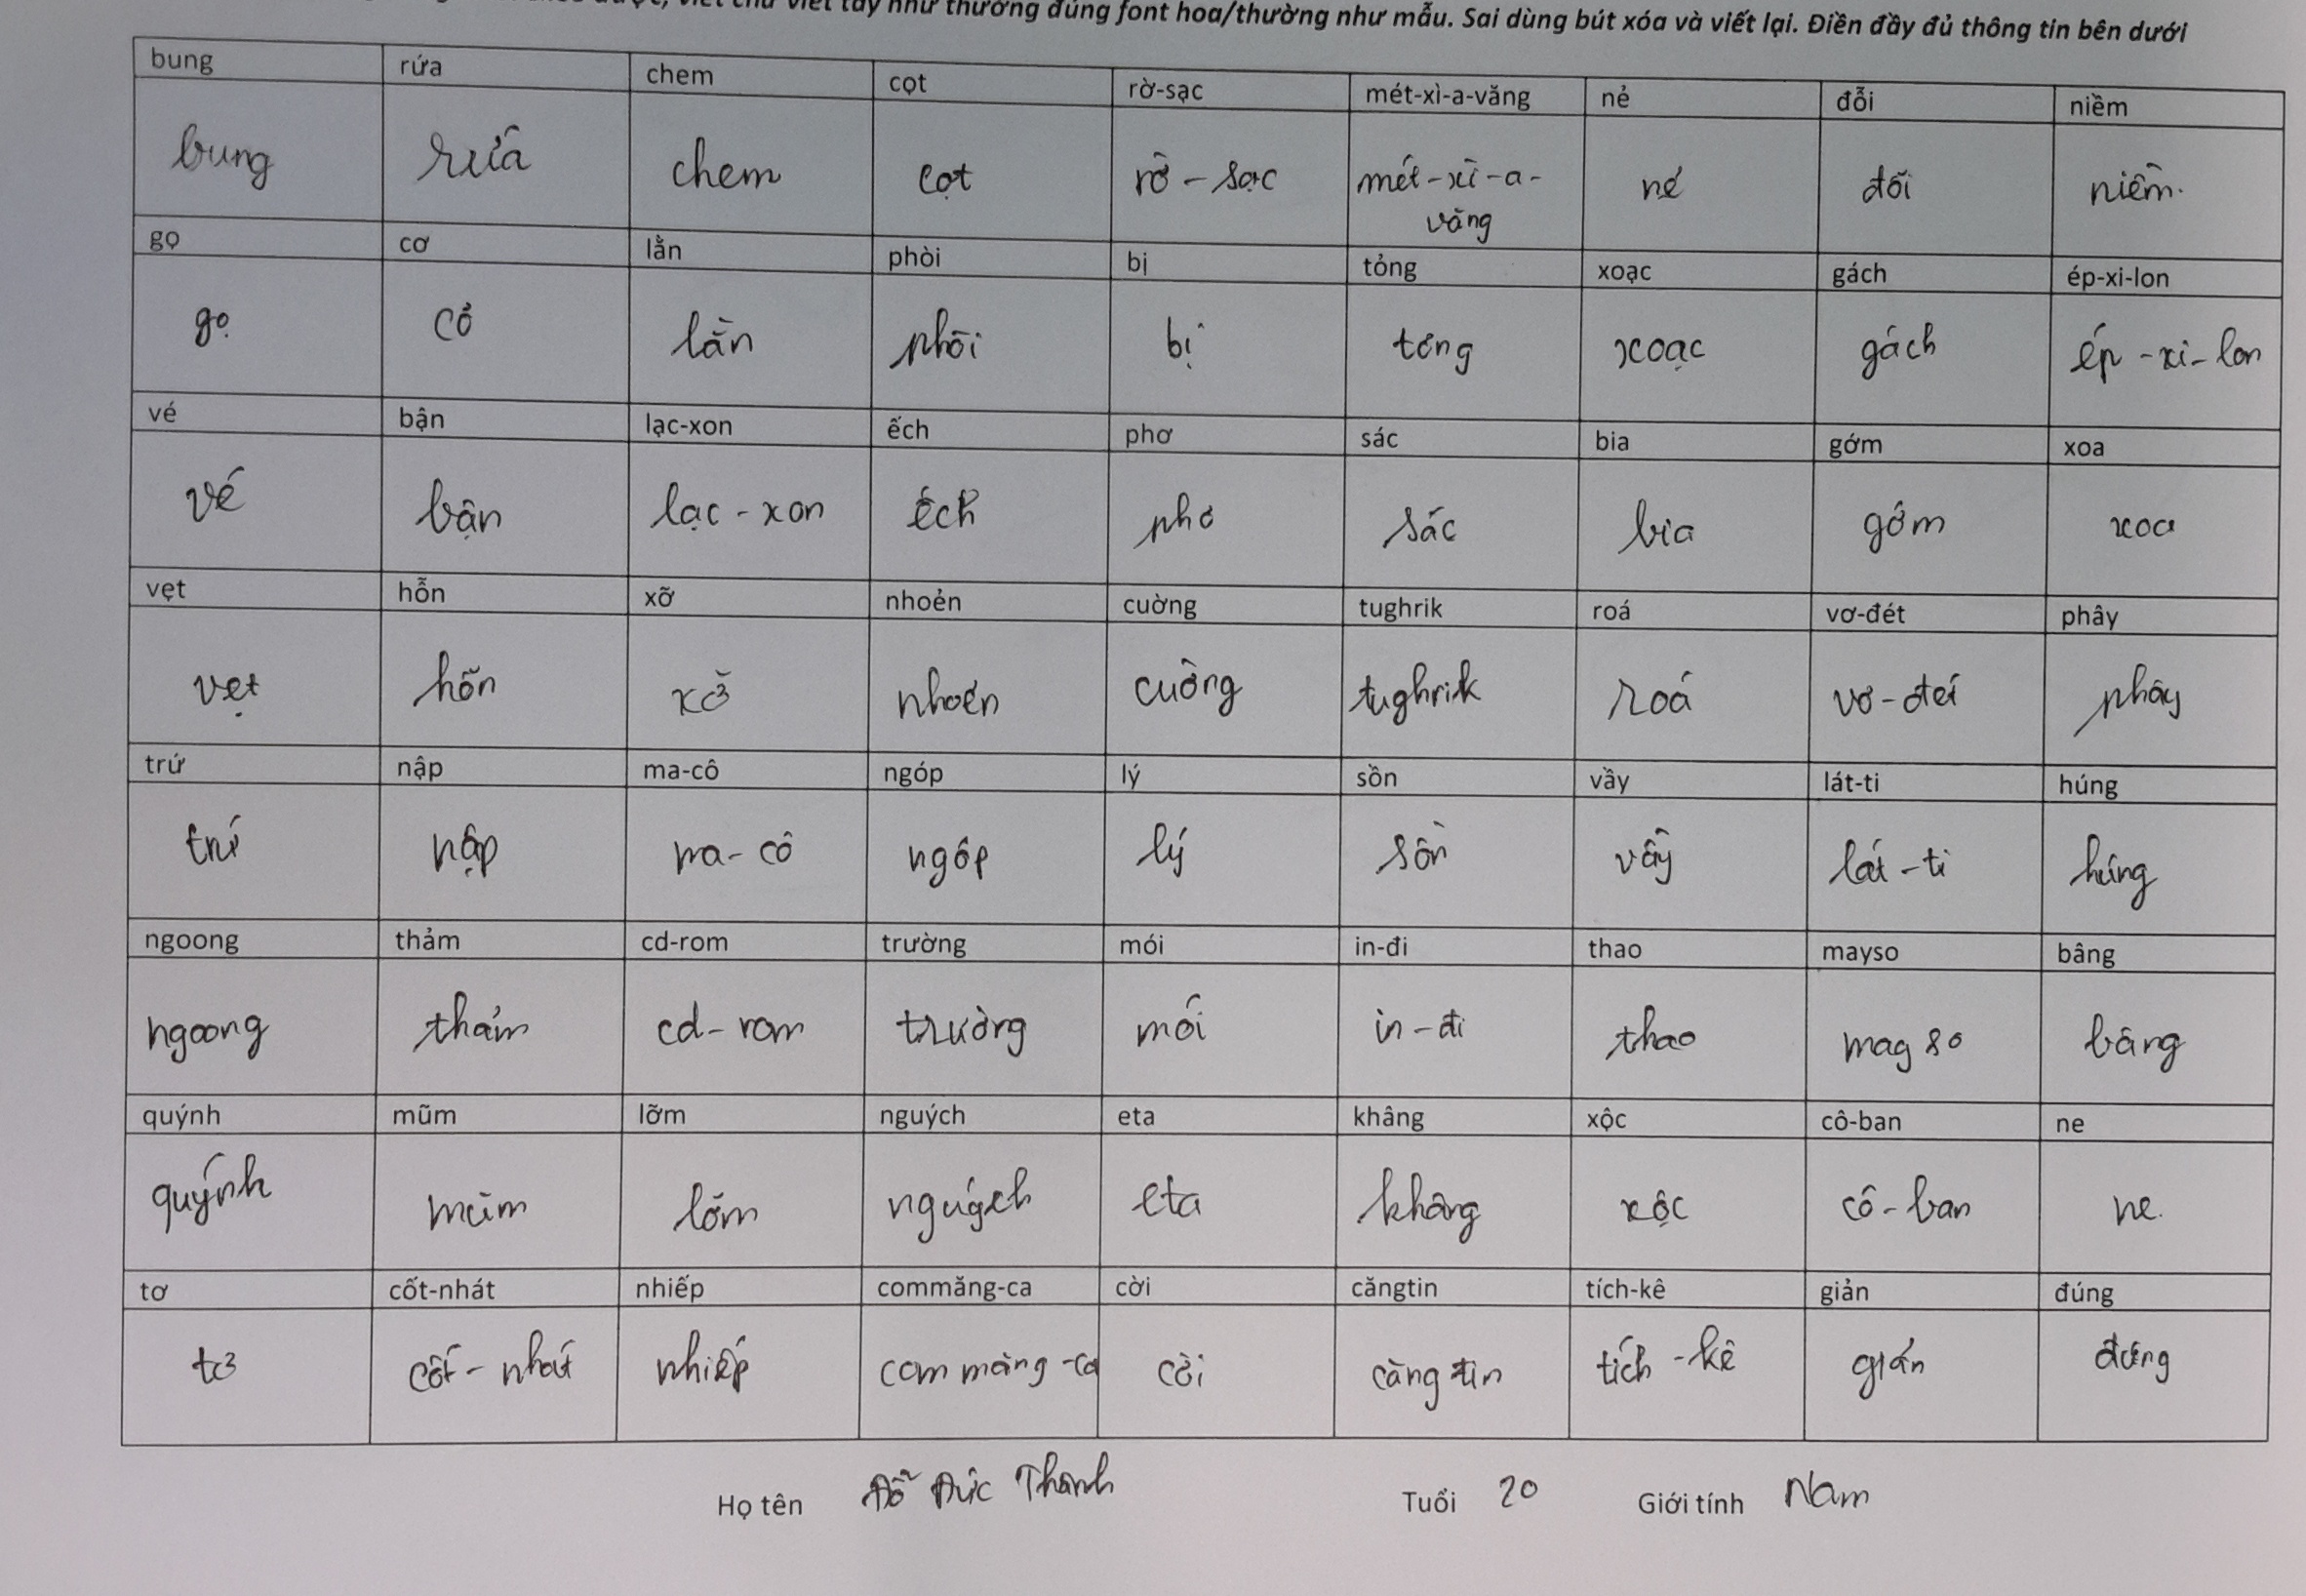 viết chữ viết tay như thường đúng font hoa/thường như mẫu. Sai dùng bút xóa và viết lại. Điền đầy đủ thông tin bên dưới
bung rứa chem cọt rờ-sạc mét-xì-a-văng nẻ đỗi niềm
bung rứa chem cọt rờ - sạc mét-xì-a- nẻ đỗi niềm.
văng
gọ cơ lằn phòi bị tỏng xoạc gách ép-xi-lon
gọ cơ lằn phòi bị tỏng xoạc gách ép -xi- lon
vé bận lạc-xon ếch phơ sác bia gớm xoa
vé bận lạc - xon ếch phơ sác bia gớm xoa
vẹt hỗn xỡ nhoẻn cuờng tughrik roá vơ-đét phây
vẹt hỗn xỡ nhoẻn cuờng tughrik roá vơ-đét phây
trứ nập ma-cô ngóp lý sồn vầy lát-ti húng
trứ nập ma- cô ngóp lý sồn vầy lát -ti húng
ngoong thảm cd-rom trường mói in-đi thao mayso bâng
ngoong thảm cd- rom trường mói in -đi thao mayso bâng
quýnh mũm lỡm nguých eta khâng xộc cô-ban ne
quýnh mũm lỡm nguých eta khâng xộc cô - ban ne.
tơ cốt-nhát nhiếp commăng-ca cời căngtin tích-kê giản đúng
tơ cốt - nhát nhiếp commăng -ca cời căngtin tích -kê giản đúng
Họ tên Đỗ Đức Thành Tuổi 20 Giới tính Nam